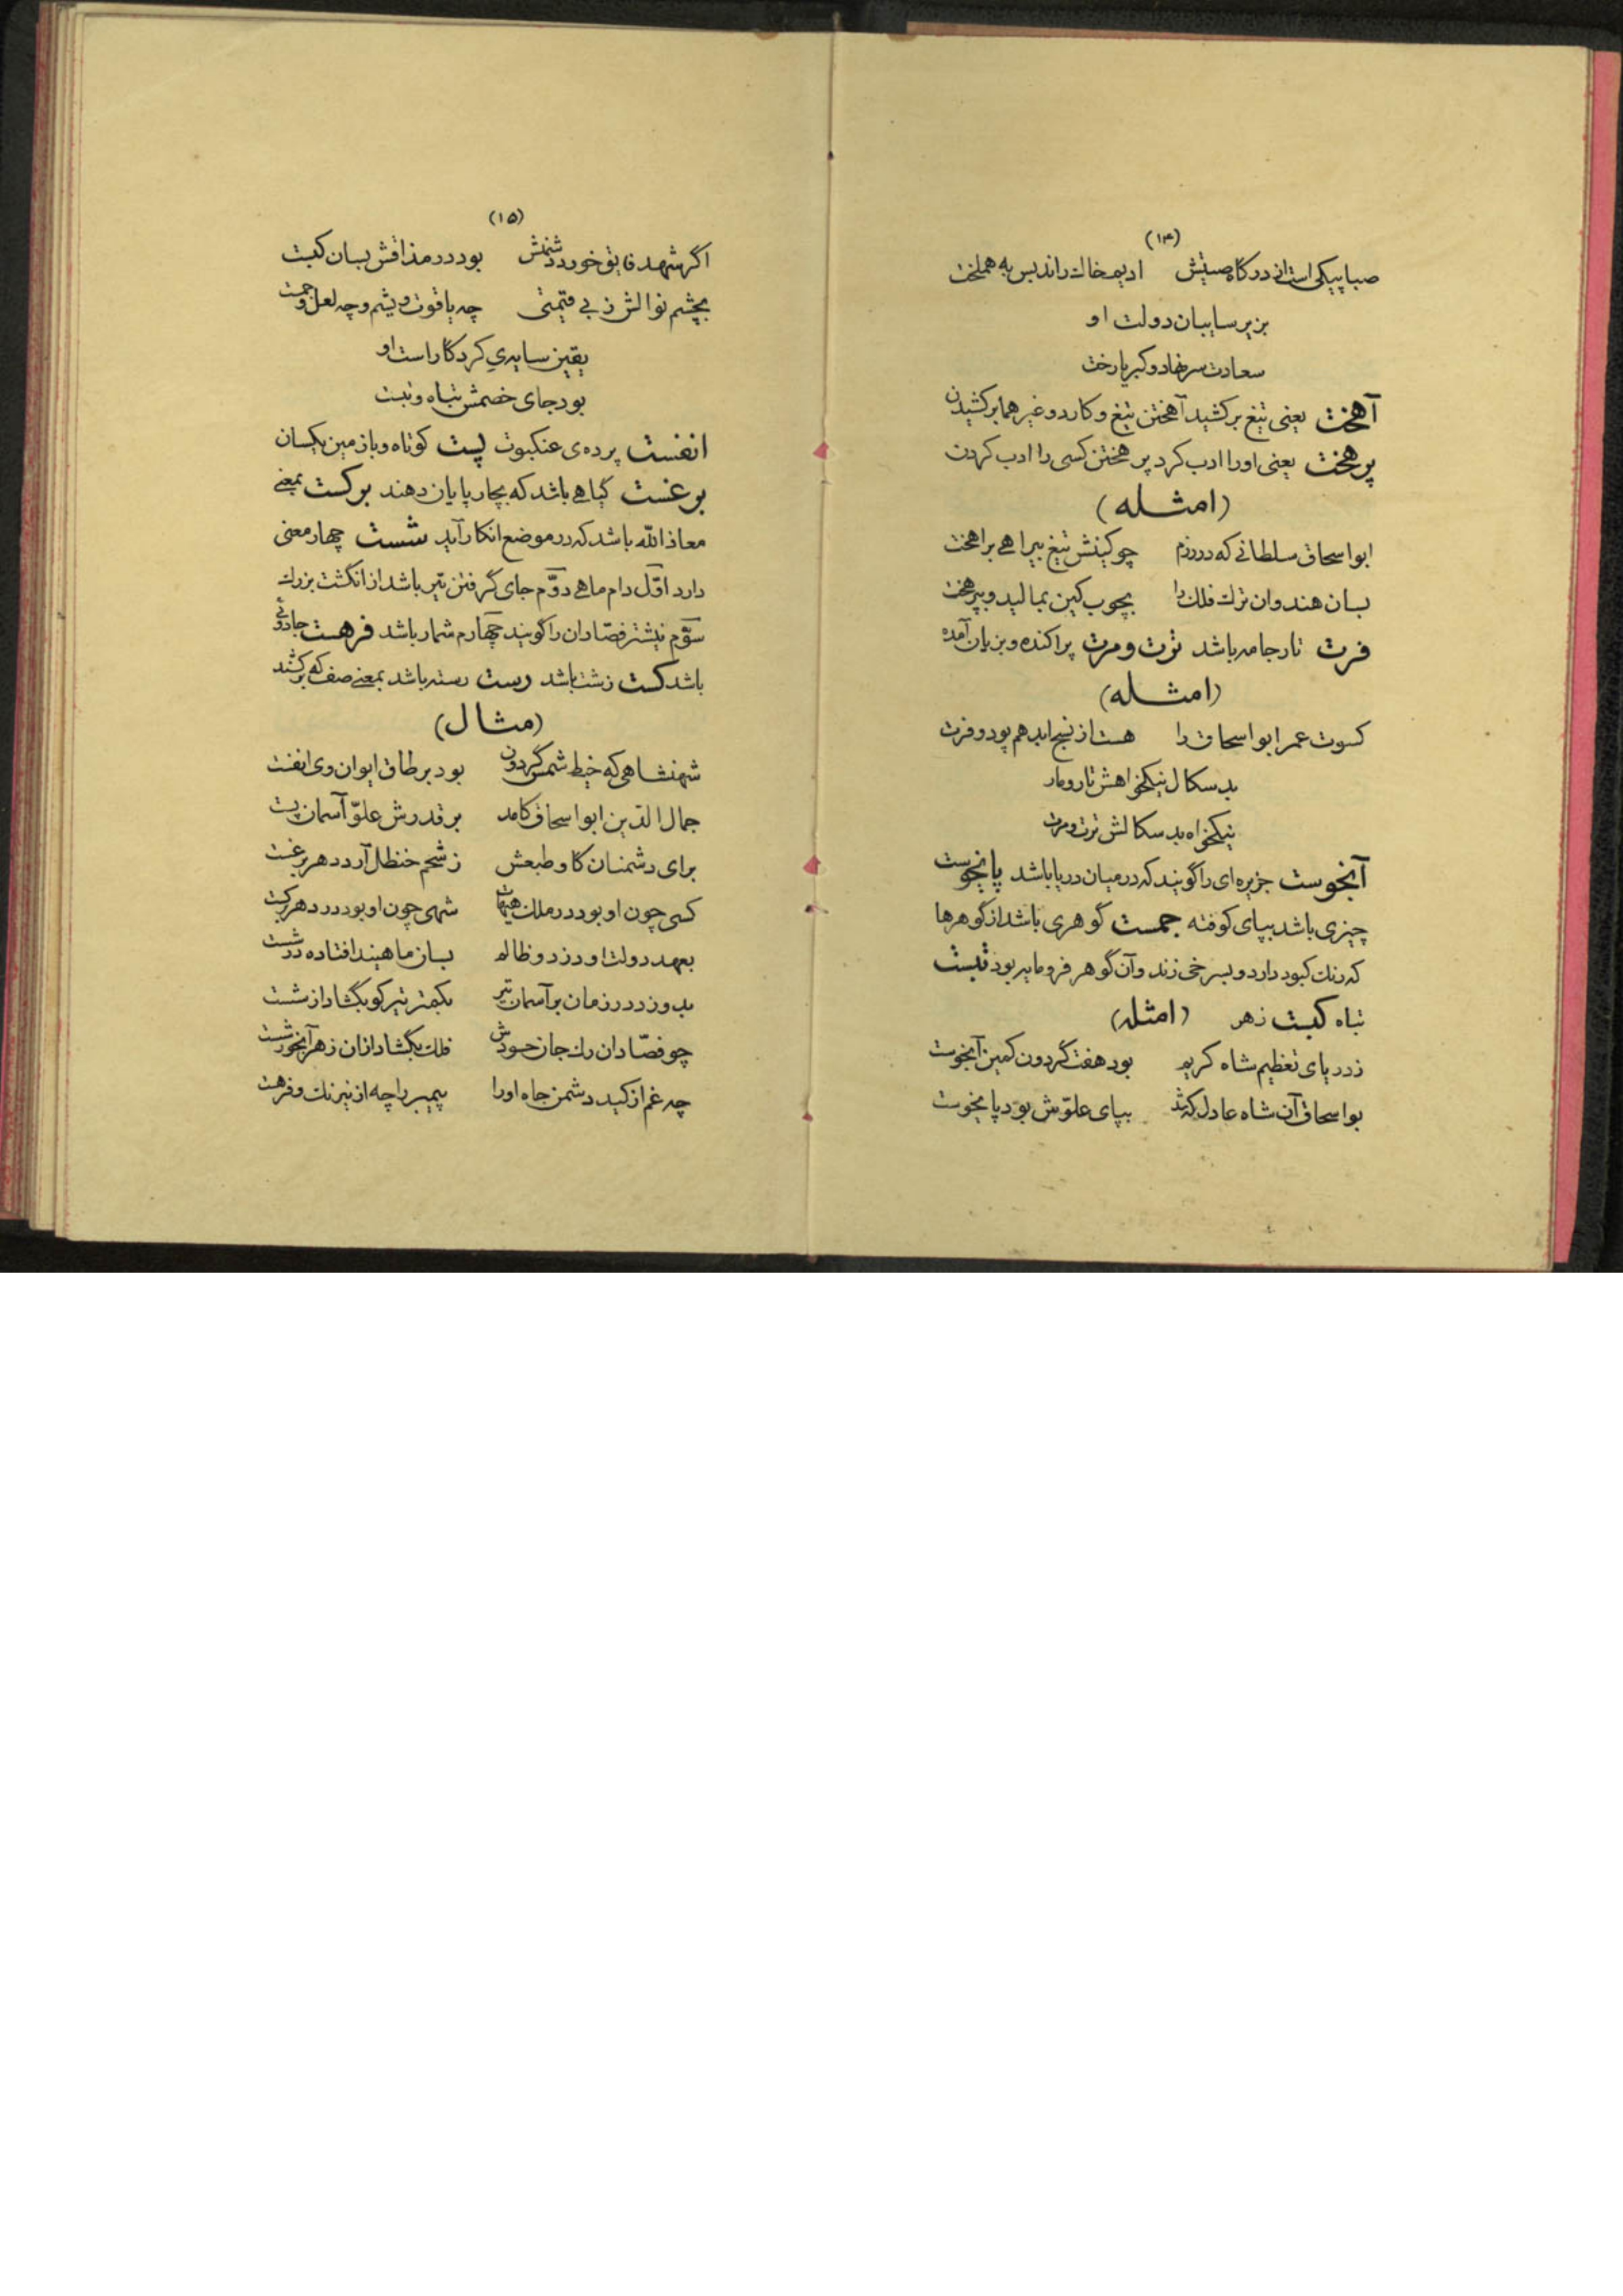 (۱۴)
صبا پیکی است از درگاه صیتش ادیم خاك را ندیس به هملخت
بزیر سایبان دولت او
سعادت سر نهاد و کبریا رخت
آهخت یعنی تیغ برکشید آهختن تیغ و کارد و غیرهما برکشیدن
پرهخت یعنی او را ادب کرد پرهختن کسی را ادب کردن
(امثله)
ابواسحاق سلطانی که در رزم چو کینش تیغ بیراهی برآهخت
بسان هندوان ترك فلك را بچوب کین بمالید و بپرهخت
فرت تار جامه باشد ترت و مرت پراکنده و بزیان آمده
(امثله)
کسوت عمر ابواسحاق را هست از نسج ابد هم پود و فرت
بدسگال نیکخواهش تار و مار
نیکخواه بدسگالش ترت و مرت
آبخوست جزیره‌ای را گویند که در میان دریا باشد پایخوست
چیزی باشد بپای کوفته جمست گوهری باشد از گوهرها
که رنك کبود دارد و بسرخی زند و آن گوهر فرومایه بود تبست
تباه کبست زهر (امثله)
ز دریای تعظیم شاه کریم بود هفت گردون کمین آبخوست
بواسحاق آن شاه عادل که شد بپای علوّش بود پایخوست
(۱۵)
اگر شهد فایق خورد دشمنش بود در مذاقش بسان کبست
بچشم نوالش ز بی قیمتی چه یاقوت و یشم و چه لعل و جمست
یقین سایه‌ی کردگار است او
بود جای خصمش تباه و تبست
انفست پرده‌ی عنکبوت پست کوتاه و باز مین یکسان
برغست گیاهی باشد که بچارپایان دهند برکست بمعنی
معاذ الله باشد که در موضع انکار آید شست چهار معنی
دارد اوّل دام ماهی دوّم جای گرفتن تیر باشد از انگشت بزرك
سوّم نیشتر فصّادان را گویند چهارم شمار باشد فرهست جادوئی
باشد کست زشت باشد رست رسته باشد بمعنی صف که برکشند
(مثال)
شهنشاهی که خیط شمس گردون بود بر طاق ایوان وی انفست
جمال الدّین ابواسحاق کامد بر قدرش علوّ آسمان پست
برای دشمنان گاو طبعش ز شحم حنظل آرد دهر برغست
کسی چون او بود در ملك هیهات شهی چون او بود در دهر برکست
بعهد دولت او دزد و ظالم بسان ماهیند افتاده در شست
بدوزد در زمان بر آسمان تیر بکمتر تیر کو بگشاد از شست
چو فصّادان رك جان حسودش فلك بگشاد ازان زهر آبخور شست
چه غم از کید دشمن جاه او را پیمبر را چه از نیرنك و فرهست